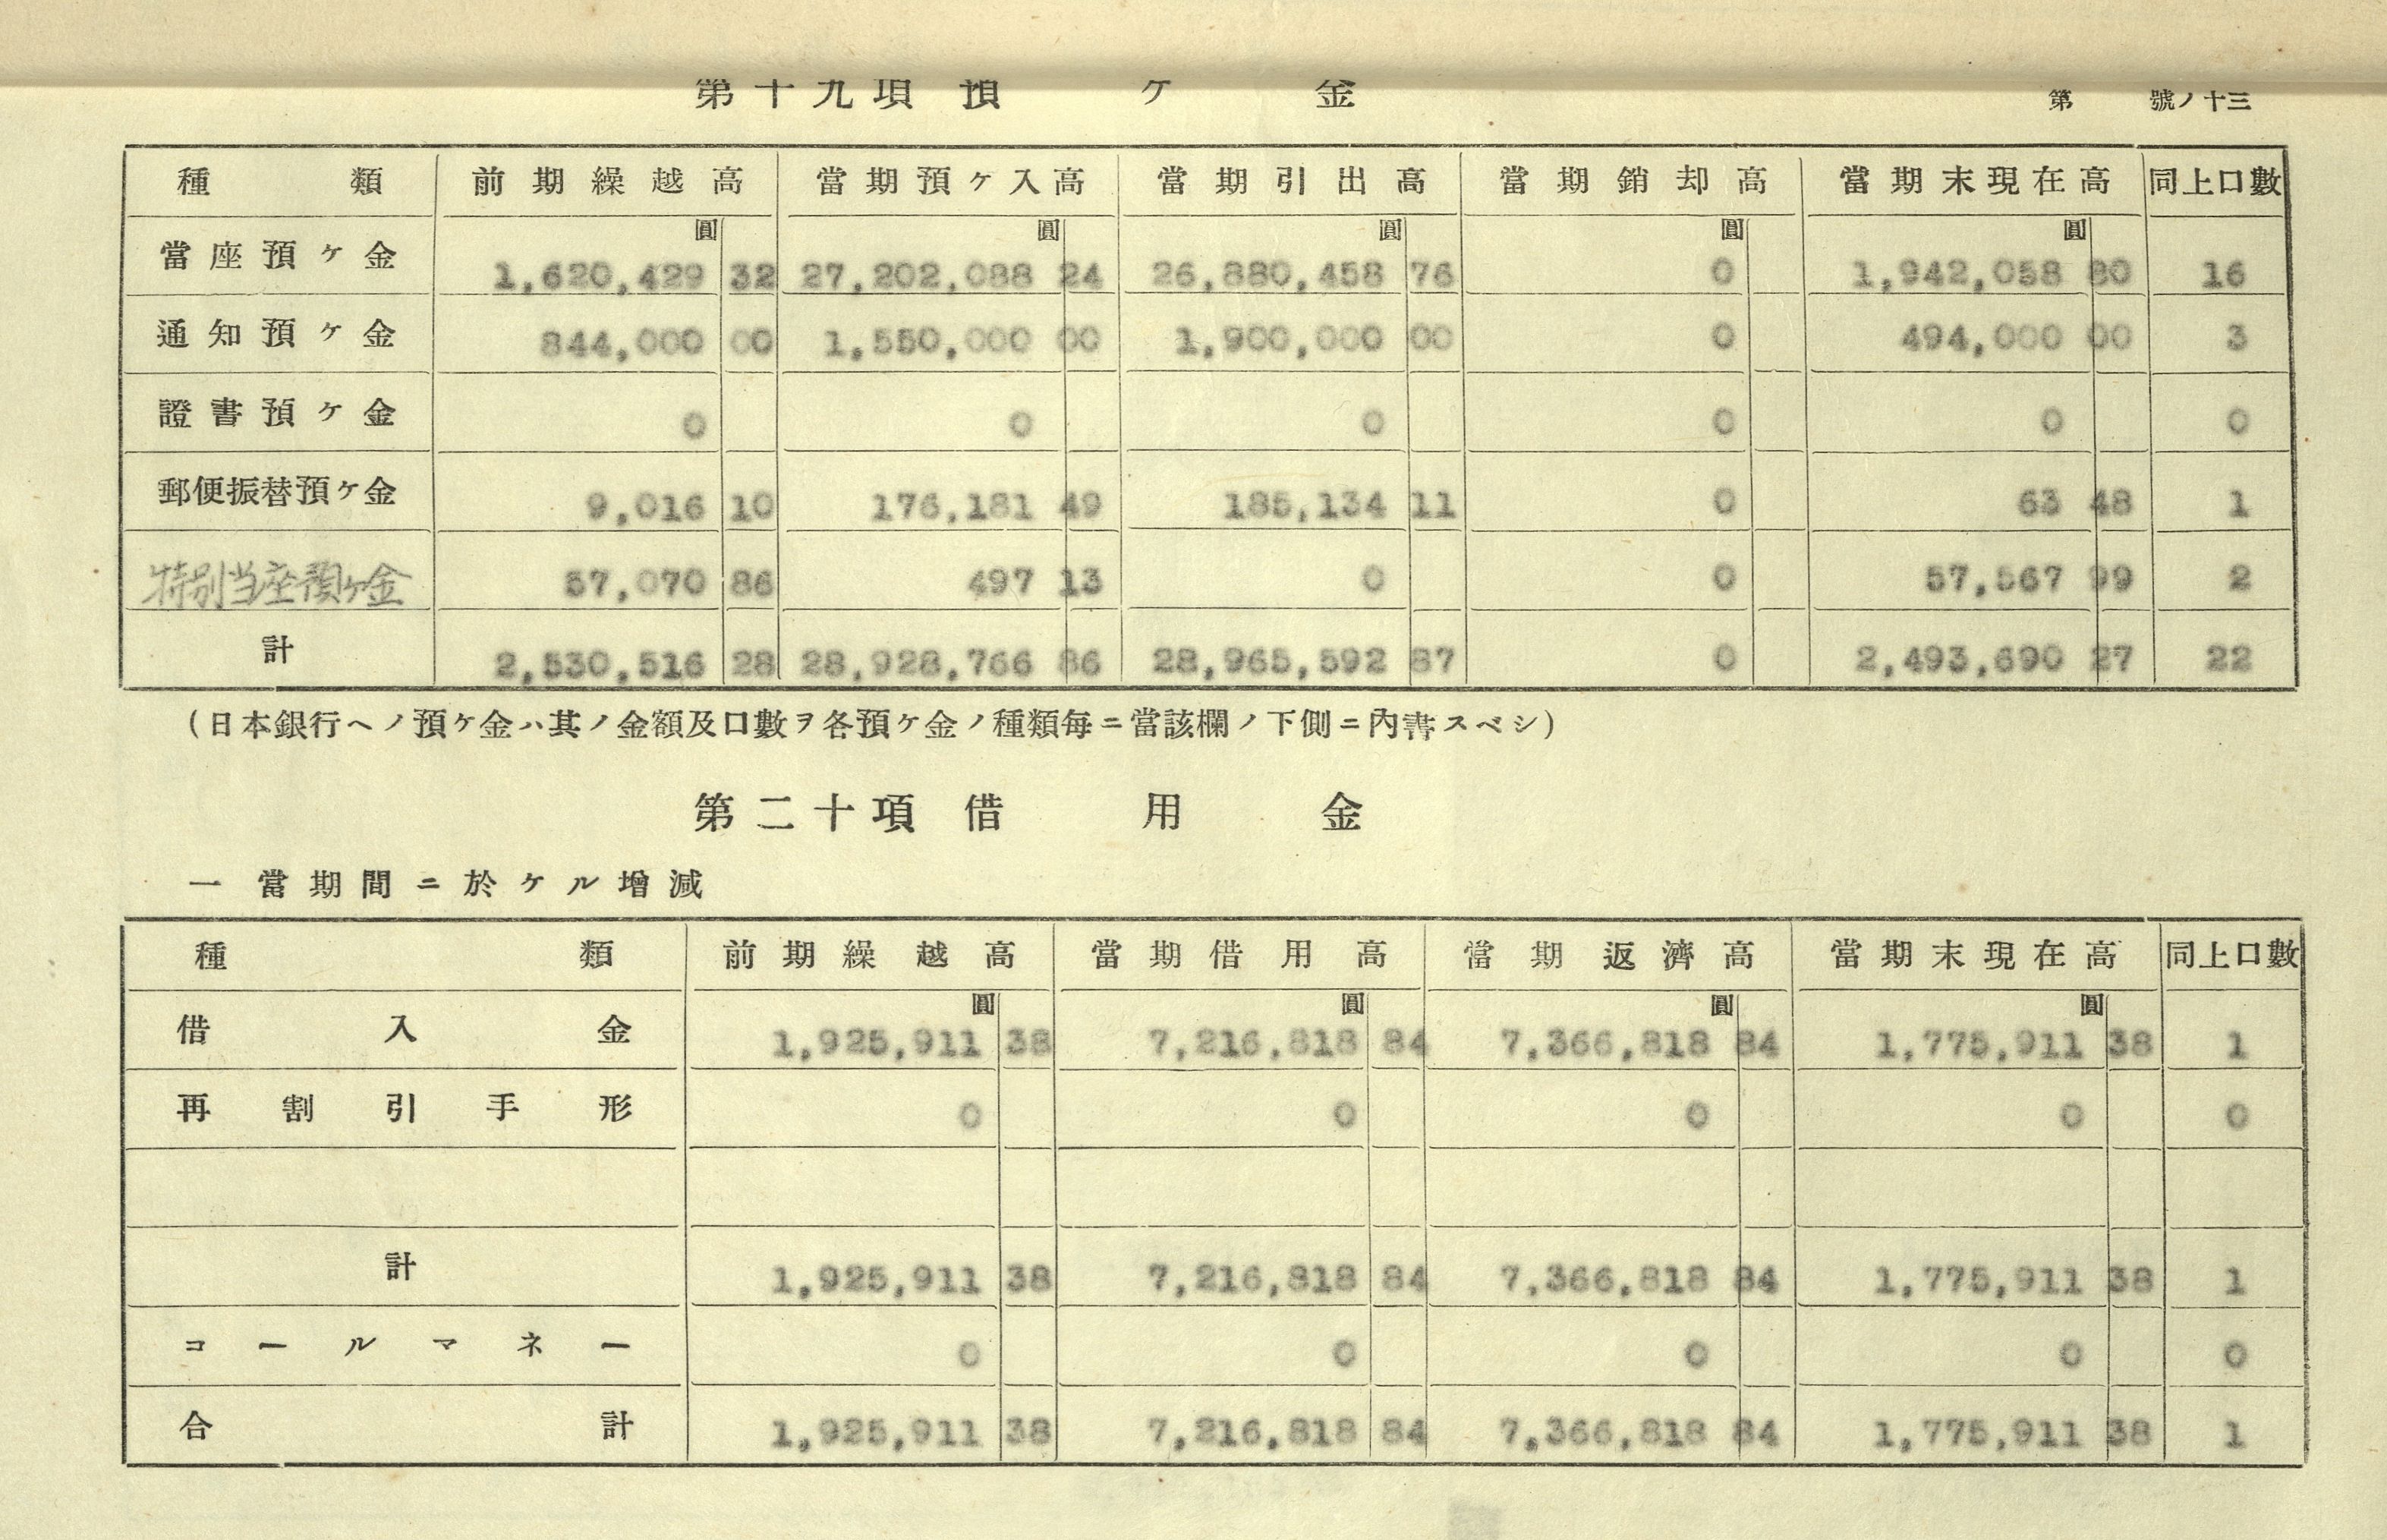 第十九項 預ケ金
第 號ノ十三
種類 前期繰越高 當期預ケ入高 當期引出高 當期銷却高 當期末現在高 同上口數
圓 圓 圓 圓 圓
當座預ケ金 1,620,429 32 27,202,088 24 26,880,458 76 0 1,942,058 80 16
通知預ケ金 844,000 00 1,550,000 00 1,900,000 00 0 494,000 00 3
證書預ケ金 0 0 0 0 0 0
郵便振替預ケ金 9,016 10 176,181 49 185,134 11 0 63 48 1
特別当座預ケ金 57,070 86 497 13 0 0 57,567 99 2
計 2,530,516 28 28,928,766 86 28,965,592 87 0 2,493,690 27 22
(日本銀行ヘノ預ケ金ハ其ノ金額及口數ヲ各預ケ金ノ種類每ニ當該欄ノ下側ニ內書スベシ)
第二十項 借用金
一 當期間ニ於ケル增減
種類 前期繰越高 當期借用高 當期返濟高 當期末現在高 同上口數
圓 圓 圓 圓
借入金 1,925,911 38 7,216,818 84 7,366,818 84 1,775,911 38 1
再割引手形 0 0 0 0 0
計 1,925,911 38 7,216,818 84 7,366,818 84 1,775,911 38 1
コールマネー 0 0 0 0 0
合計 1,925,911 38 7,216,818 84 7,366,818 84 1,775,911 38 1